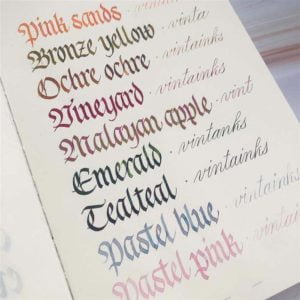 Pink sands · vintain
Bronze yellow · vinta
Ochre ochre · vintainks
Vineyard · vintainks
Malayan apple · vint
Emerald · vintainks
Tealteal · vintainks
Pastel blue · vintainks
Pastel pink · vintain